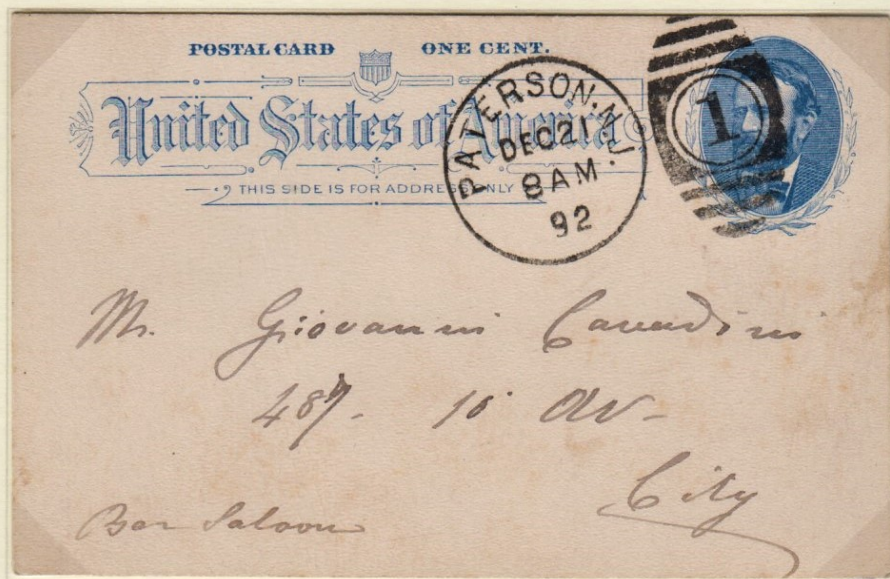 POSTAL CARD ONE CENT.
United States of America
THIS SIDE IS FOR ADDRESS ONLY
PATERSON. N.J.
DEC 21
8 AM.
92
1
Mr. Giovanni
487- 10 Av-
City
Bar Saloon